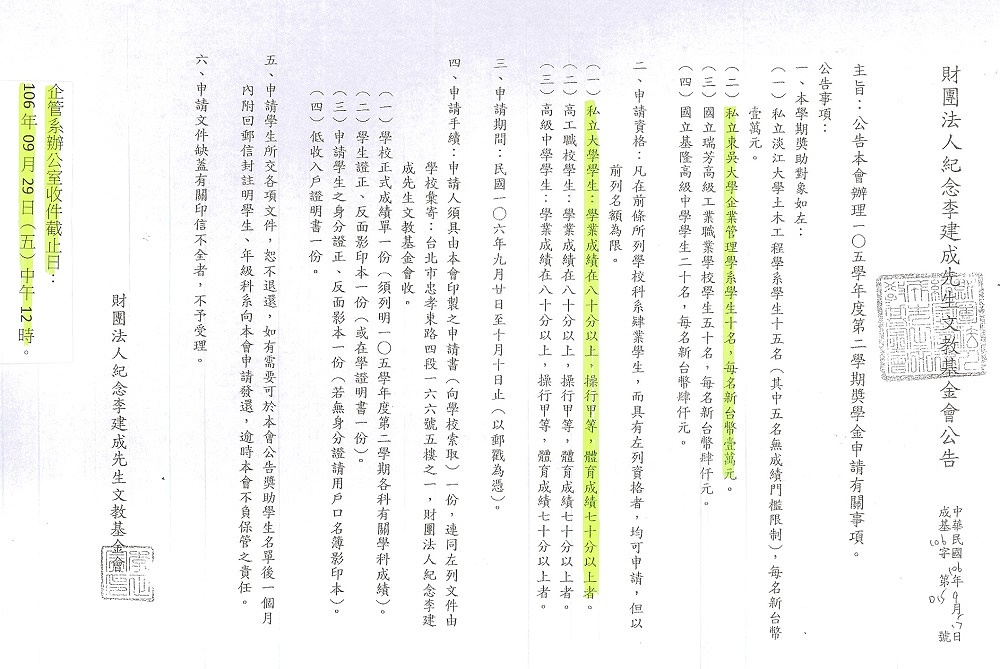 財團法人紀念李建成先生文教基金會公告
中華民國106年9月17日
成基106字 第015號
主旨：公告本會辦理一○五學年度第二學期獎學金申請有關事項。
公告事項：
一、本學期獎助對象如左：
（一）私立淡江大學土木工程學系學生十五名（其中五名無成績門檻限制），每名新台幣
壹萬元。
（二）私立東吳大學企業管理學系學生十名，每名新台幣壹萬元。
（三）國立瑞芳高級工業職業學校學生五十名，每名新台幣肆仟元。
（四）國立基隆高級中學學生二十名，每名新台幣肆仟元。
二、申請資格：凡在前條所列學校科系肄業學生，而具有左列資格者，均可申請，但以
前列名額為限。
（一）私立大學學生：學業成績在八十分以上，操行甲等，體育成績七十分以上者。
（二）高工職校學生：學業成績在八十分以上，操行甲等，體育成績七十分以上者。
（三）高級中學學生：學業成績在八十分以上，操行甲等，體育成績七十分以上者。
三、申請期間：民國一○六年九月廿日至十月十日止（以郵戳為憑）。
四、申請手續：申請人須具由本會印製之申請書（向學校索取）一份，連同左列文件由
學校彙寄：台北市忠孝東路四段一六六號五樓之一，財團法人紀念李建
成先生文教基金會收。
（一）學校正式成績單一份（須列明一○五學年度第二學期各科有關學科成績）。
（二）學生證正、反面影印本一份（或在學證明書一份）。
（三）申請學生之身分證正、反面影本一份（若無身分證請用戶口名簿影印本）。
（四）低收入戶證明書一份。
五、申請學生所交各項文件，恕不退還，如有需要可於本會公告獎助學生名單後一個月
內附回郵信封註明學生、年級科系向本會申請發還，逾時本會不負保管之責任。
六、申請文件缺蓋有關印信不全者，不予受理。
財團法人紀念李建成先生文教基金會
企管系辦公室收件截止日：
106 年 09 月 29 日（五）中午 12 時。